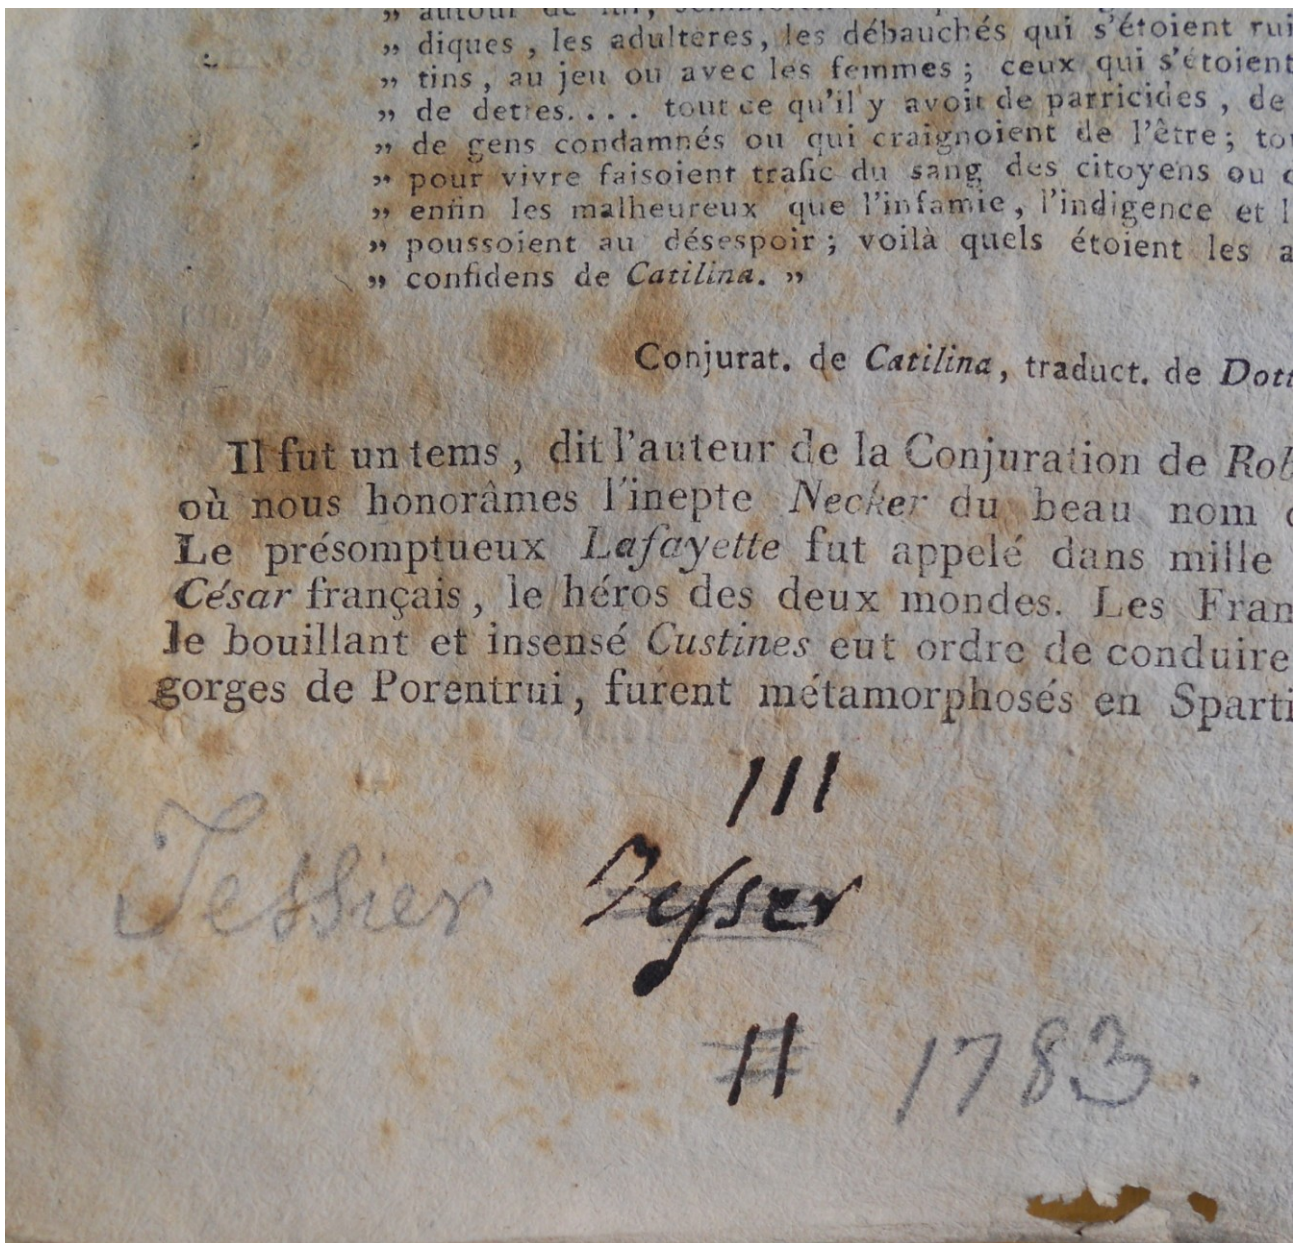 „ autour de lui,
„ diques, les adultères, les débauchés qui s'étoient rui
„ tins, au jeu ou avec les femmes; ceux qui s'étoient
„ de dettes.... tout ce qu'il y avoit de parricides, de
„ de gens condamnés ou qui craignoient de l'être; tou
„ pour vivre faisoient trafic du sang des citoyens ou d
„ enfin les malheureux que l'infamie, l'indigence et l
„ poussoient au désespoir; voilà quels étoient les a
„ confidens de Catilina. „
Conjurat. de Catilina, traduct. de Dott
Il fut un tems, dit l'auteur de la Conjuration de Rob
où nous honorâmes l'inepte Necker du beau nom d
Le présomptueux Lafayette fut appelé dans mille
César français, le héros des deux mondes. Les Fran
le bouillant et insensé Custines eut ordre de conduire
gorges de Porentrui, furent métamorphosés en Sparti
III
Tessier Tesser
II 1783.